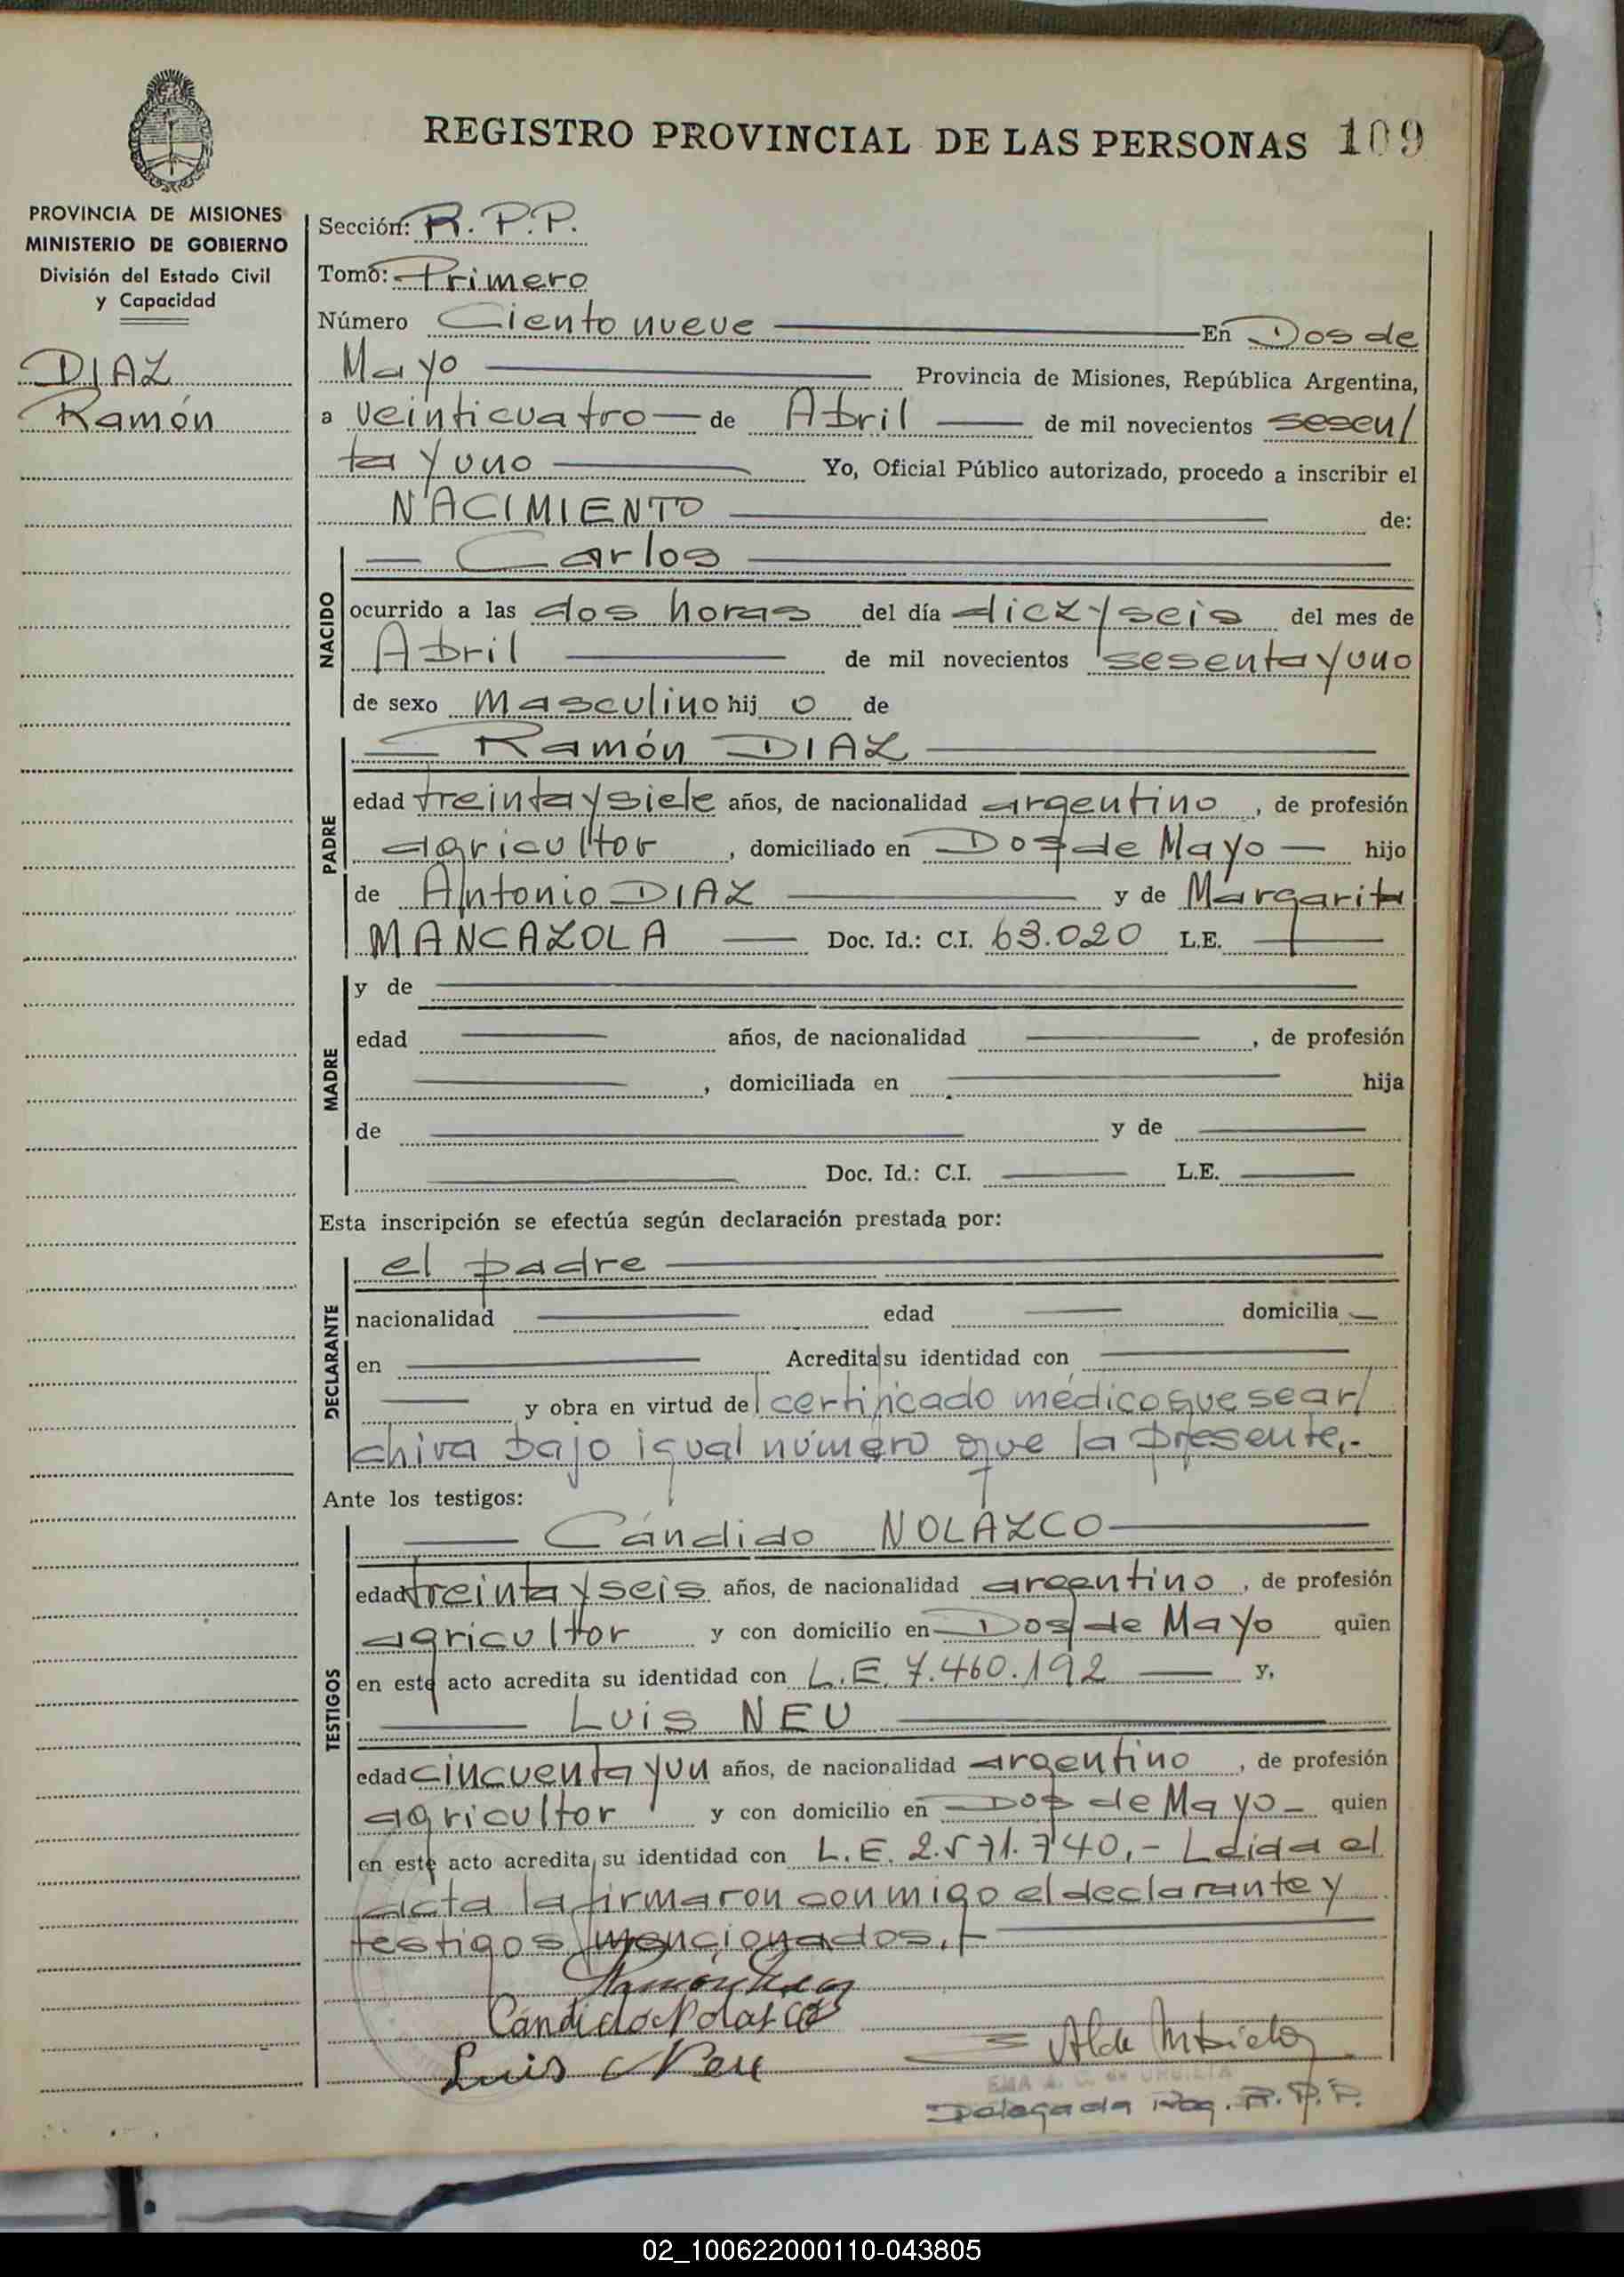 REGISTRO PROVINCIAL DE LAS PERSONAS 109
PROVINCIA DE MISIONES
MINISTERIO DE GOBIERNO
División del Estado Civil
y Capacidad
DIAZ
Ramón
Sección: R. P. P.
Tomo: Primero
Número Ciento nueve En Dos de
Mayo Provincia de Misiones, República Argentina,
a veinticuatro de Abril de mil novecientos sesen/
ta y uno Yo, Oficial Público autorizado, procedo a inscribir el
NACIMIENTO de:
NACIDO
Carlos
ocurrido a las dos horas del día diez y seis del mes de
Abril de mil novecientos sesenta y uno
de sexo Masculino hij o de
PADRE
Ramón DIAZ
edad treinta y siete años, de nacionalidad argentino, de profesión
agricultor, domiciliado en Dos de Mayo hijo
de Antonio DIAZ y de Margarita
MANCAZOLA Doc. Id.: C.I. 63.020 L.E.
MADRE
y de
edad años, de nacionalidad , de profesión
, domiciliada en hija
de y de
Doc. Id.: C.I. L.E.
Esta inscripción se efectúa según declaración prestada por:
DECLARANTE
el padre
nacionalidad edad domicilia
en Acredita su identidad con
y obra en virtud del certificado médico que se ar/
chiva bajo igual número que la presente.-
Ante los testigos:
TESTIGOS
Cándido NOLAZCO
edad treinta y seis años, de nacionalidad argentino, de profesión
agricultor y con domicilio en Dos de Mayo quien
en este acto acredita su identidad con L.E. 7.460.192 y,
Luis NEU
edad cincuenta y un años, de nacionalidad argentino, de profesión
agricultor y con domicilio en Dos de Mayo - quien
en este acto acredita su identidad con L.E. 2.571.740.- Leida el
acta la firmaron conmigo el declarante y
testigos mencionados.-
Ramón Diaz
Cándido Nolasco
Luis Neu
EMA A. C. de URBIETA
Delegada Reg. R. P. P.
02_100622000110-043805